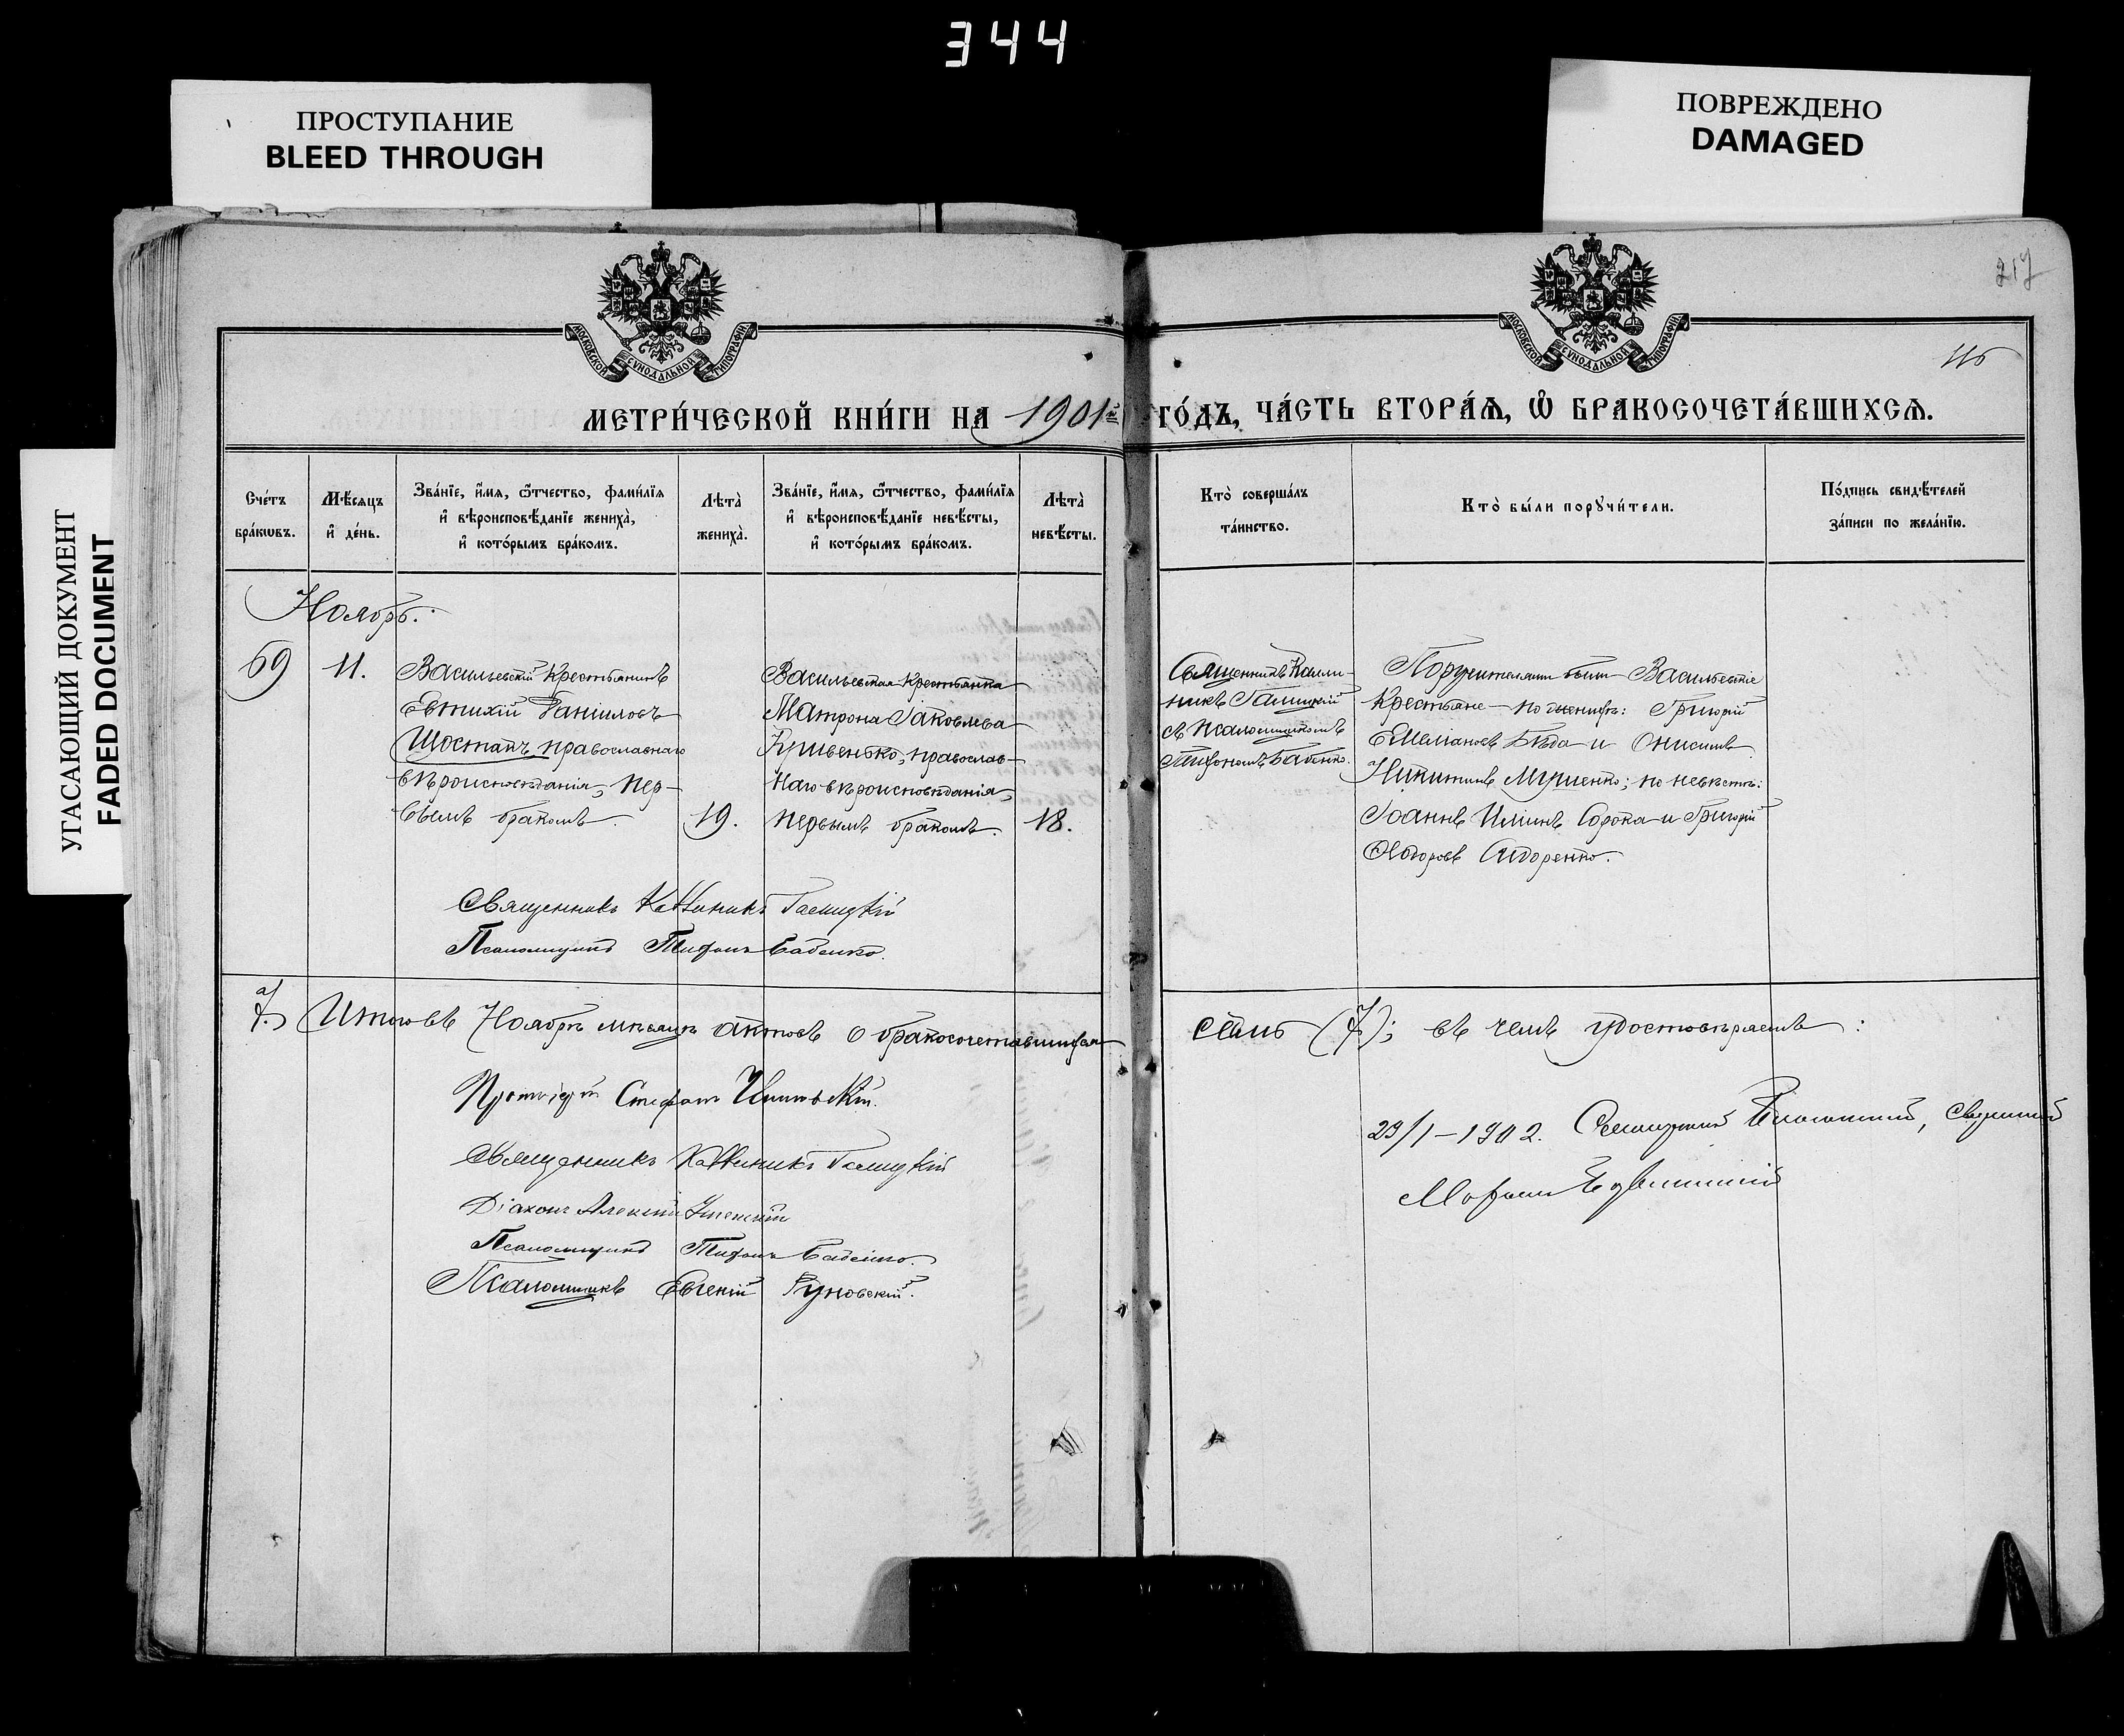 344
ПРОСТУПАНИЕ
BLEED THROUGH
ПОВРЕЖДЕНО
DAMAGED
УГАСАЮЩИЙ ДОКУМЕНТ
FADED DOCUMENT
МОСКОВСКОЙ СѴНОДАЛЬНОЙ ТИПОГРАФІИ
МОСКОВСКОЙ СѴНОДАЛЬНОЙ ТИПОГРАФІИ
217
116
МЕТРИ́ЧЕСКОЙ КНИ́ГИ НА 1901й ГО́ДЪ, ЧА́СТЬ ВТОРА́Ѧ, Ѽ БРАКОСОЧЕТА́ВШИХСѦ.
Сче́тъ
бра́кѡвъ.
Мѣ́сѧцъ
и҆ де́нь.
Зва́нїе, и҆́мѧ, ѻ҆́тчество, фами́лїѧ
и҆ вѣроисповѣ́данїе жениха̀,
и҆ кото́рымъ бра́комъ.
Лѣта̀
жениха̀.
Зва́нїе, и҆́мѧ, ѻ҆́тчество, фами́лїѧ
и҆ вѣроисповѣ́данїе невѣ́сты,
и҆ кото́рымъ бра́комъ.
Лѣта̀
невѣ́сты.
Кто̀ соверша́лъ
та́инство.
Кто̀ бы́ли порꙋчи́тели.
По́дпись свидѣ́телей
за́писи по жела́нїю.
Ноябрь.
69
11.
Васильевскій крестьянинъ
Евтихій Даніиловъ
Шостакъ, православнаго
вѣроисповѣданія, пер-
вымъ бракомъ.
19.
Васильевская крестьянка
Матрона Іаковлева
Кривенъко, православ-
наго вѣроисповѣданія,
первымъ бракомъ.
18.
Священникъ Калли-
никъ Галицкій
съ псаломщикомъ
Тифономъ Бабенко.
Поручителями были Васильевскіе
крестьяне по женихѣ: Григорій
Емеліановъ Бѣда и Онисимъ
Никитинъ; по невѣстѣ:
Іоаннъ Илiинъ Сорока и Григорій
Ѳедоровъ Сидоренко.
Священникъ Каллиникъ Галицкій
Псаломщикъ Тифонъ Бабенко.
7.
Итого въ Ноябрѣ мѣсяцѣ актовъ о бракосочетавшихся
семь (7); въ чемъ удостовѣряемъ:
Протоіерей Стефанъ
Священникъ Каллиникъ Галицкій
Діаконъ Алексій
Псаломщикъ Тифонъ Бабенко.
Псаломщикъ Евгеній Руновскій.
29/I–1902.